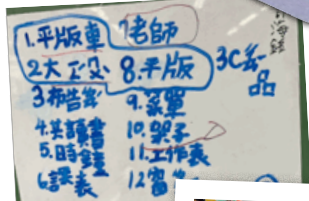 1.平版車
2大
3布告
4.英讀書
5.時鐘
6.課表
7老師
8.平版
9.菜單
10.架子
11.工作表
12窗
3C
品